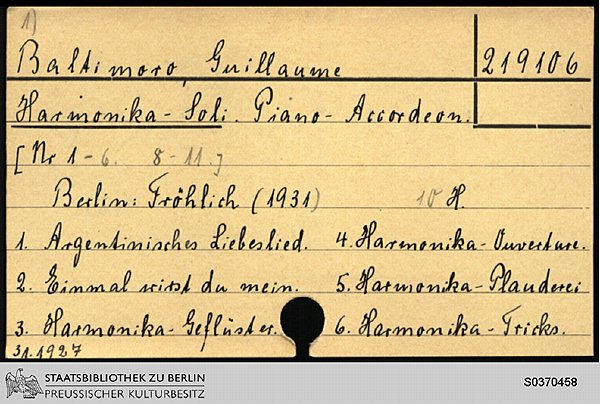 1)
Baltimoro, Guillaume 219106
Harmonika-Soli. Piano-Accordeon.
[Nr 1-6. 8-11.]
Berlin: Fröhlich (1931) 10 H.
1. Argentinisches Liebeslied. 4. Harmonika-Ouverture.
2. Einmal wirst du mein. 5. Harmonika-Plauderei
3. Harmonika-Geflüster. 6. Harmonika-Tricks.
31.1927
STAATSBIBLIOTHEK ZU BERLIN
PREUSSISCHER KULTURBESITZ S0370458